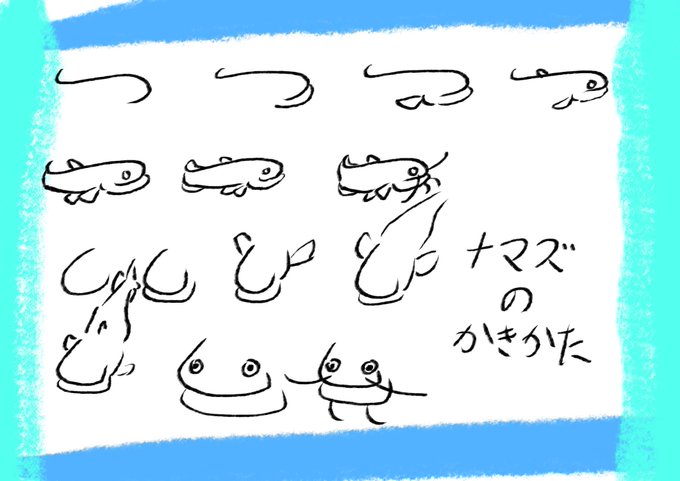 ナマズ
の
かきかた